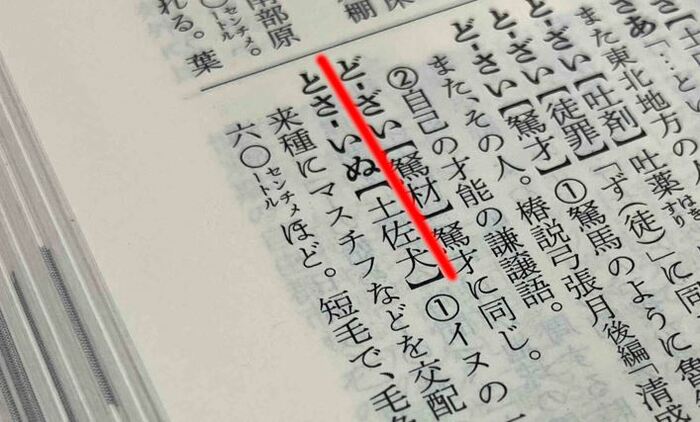 棚
南部原
〇センチメートル。
れる。葉
また東北地方の人
と‐ざい【吐剤】吐薬
と‐ざい【徒罪】「ず(徒)」に同
ど‐さい【駑才】①駑馬のように魯
また、その人。椿説弓張月後編「清成
②自己の才能の謙譲語。
ど‐ざい【駑材】駑才に同じ。
とさ‐いぬ【土佐犬】①イヌの一
来種にマスチフなどを交配
六〇センチメートルほど。短毛で、毛色